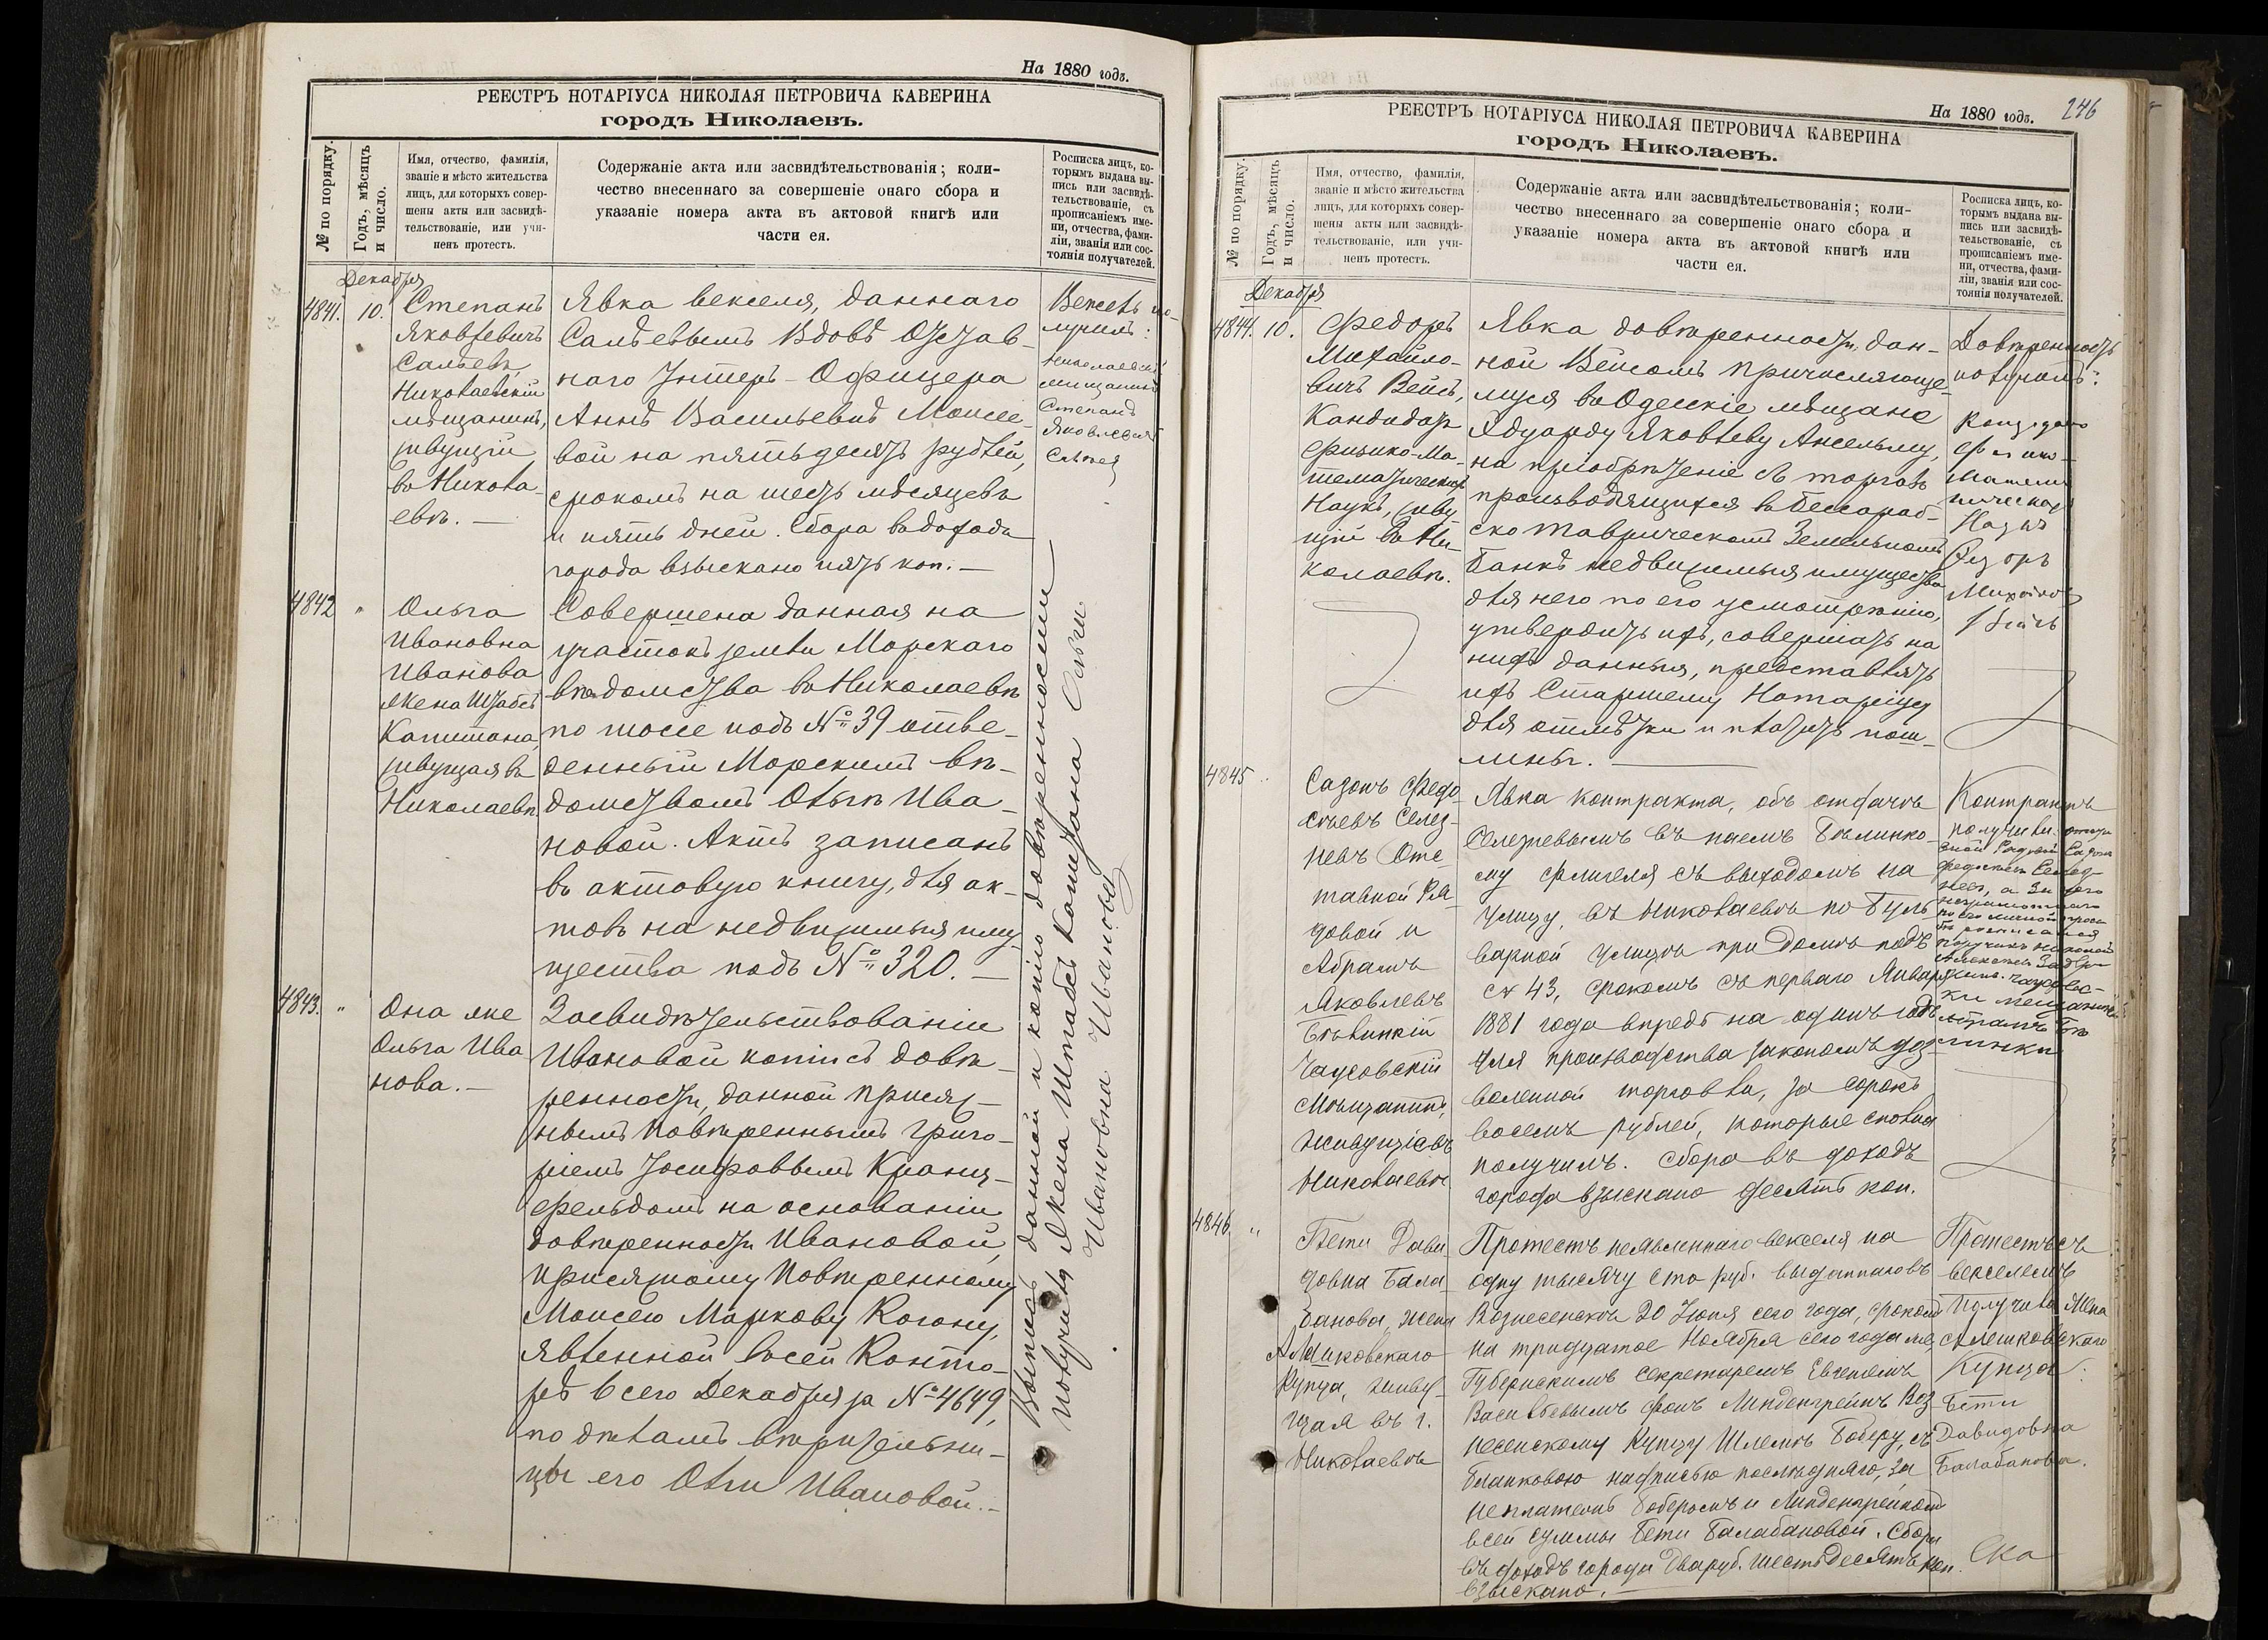 На 1880 годъ.
РЕЕСТРЪ НОТАРІУСА НИКОЛАЯ ПЕТРОВИЧА КАВЕРИНА
городъ Николаевъ.
№ по порядку.
Годъ, мѣсяцъ
и число.
Имя, отчество, фамилія,
званіе и мѣсто жительства
лицъ, для которыхъ совер-
шены акты или засвидѣ-
тельствованіе, или учи-
ненъ протестъ.
Содержаніе акта или засвидѣтельствованія; коли-
чество внесеннаго за совершеніе онаго сбора и
указаніе номера акта въ актовой книгѣ или
части ея.
Росписка лицъ, ко-
торымъ выдана вы-
пись или засвидѣ-
тельствованіе, съ
прописаніемъ име-
ни, отчества, фами-
ліи, званія или сос-
тоянія получателей.
Декабря
4841. 10.
Степанъ
Яковлевичъ
Салтевъ,
Николаевскій
мѣщанинъ,
живущій
въ Никола-
евѣ. —
Явка векселя, даннаго
Салтевымъ Вдовѣ Отстав-
наго Унтеръ-Офицера
Аннѣ Васильевнѣ Моисее-
вой на пятьдесятъ рублей,
срокомъ на шесть мѣсяцевъ
и пять дней. Сбора въ доходъ
города взыскано пять коп. —
Вексель по-
лучилъ:
Николаевскій
мѣщанинъ
Степанъ
Яковлевичъ
4842 "
Ольга
Ивановна
Иванова
жена Штабсъ
Капитана,
живущая въ
Николаевѣ
Совершена данная на
участокъ земли Морскаго
вѣдомства въ Николаевѣ
по шоссе подъ № 39 отве-
денный Морскимъ вѣ-
домствомъ Ольгѣ Ива-
новой. Актъ записанъ
въ актовую книгу, для ак-
товъ на недвижимыя иму-
щества подъ № 320. —
4843. "
Она же
Ольга Ива
нова. —
Засвидѣтельствованіи
Ивановой копіи съ довѣ-
ренности, данной Присяж-
нымъ Повѣреннымъ Григо-
ріемъ Іосифовымъ
фельдомъ на основаніи
довѣренности Ивановой,
Присяжному Повѣренному
Моисею Маркову Когону,
явленной въ сей Конто-
рѣ 6 сего Декабря за № 4649,
по дѣламъ вѣрительни-
цы его Ольги Ивановой. —
Выпись данной и копію довѣренности
получила жена Штабсъ Капитана Ольга
Ивановна Иванова
На 1880 годъ.
246
РЕЕСТРЪ НОТАРІУСА НИКОЛАЯ ПЕТРОВИЧА КАВЕРИНА
городъ Николаевъ.
№ по порядку.
Годъ, мѣсяцъ
и число.
Имя, отчество, фамилія,
званіе и мѣсто жительства
лицъ, для которыхъ совер-
шены акты или засвидѣ-
тельствованіе, или учи-
ненъ протестъ.
Содержаніе акта или засвидѣтельствованія; коли-
чество внесеннаго за совершеніе онаго сбора и
указаніе номера акта въ актовой книгѣ или
части ея.
Росписка лицъ, ко-
торымъ выдана вы-
пись или засвидѣ-
тельствованіе, съ
прописаніемъ име-
ни, отчества, фами-
ліи, званія или сос-
тоянія получателей.
Декабря
4844. 10.
Федоръ
Михайло-
вичъ Вейсъ,
Кандидатъ
Физико-Ма-
тематическихъ
Наукъ, живу
щій въ Ни-
колаевѣ.
Явка довѣренности, дан-
ной Вейсомъ причисляюще-
муся въ Одесскіе мѣщане
Эдуарду Яковлеву Ансельму,
на пріобрѣтеніе съ торговъ
производящихся въ Бессараб-
ско Таврическомъ Земельномъ
Банкѣ недвижимыя имущества
для него по его усмотрѣнію,
утвердить ихъ, совершать на
нихъ данныя, представлять
ихъ Старшему Нотаріусу
для отмѣтки и платить пош-
лины. —
Довѣренность
получилъ:
Кандидатъ
Физико-
Матема
тическихъ
Наукъ
Федоръ
Михайлов
Вейсъ
4845 "
Сазонъ Федо-
сѣевъ Селез-
невъ Отс
тавной Ря-
довой и
Абрамъ
Яковлевъ
Бѣлинкій
Чаусовскій
Мѣщанинъ,
живущіе въ
Николаевѣ
Явка контракта, объ отдачѣ
Селезневымъ въ наемъ Бѣлинко-
му флигеля съ выходомъ на
улицу, въ Николаевѣ по Буль
варной улицѣ при домѣ подъ
№ 43, срокомъ съ перваго Января
1881 года впредь на одинъ годъ
для производства закономъ доз-
воленной торговли, за сорокъ
восемь рублей, которые сполна
получилъ. Сбора въ доходъ
города взыскано десять коп.
Контрактъ
получили: отста
вной Рядовой Сазонъ
Федосѣевъ Селез-
невъ, а за него
неграмотнаго
по его личной прось
бѣ росписался
4846 "
Бети Дави-
довна Бала-
банова, жена
Алешковскаго
Купца, живу-
щая въ г.
Николаевѣ
Протестъ неявленнаго векселя на
одну тысячу сто руб. выданнаго въ
Вознесенскѣ 20 Іюня сего года, срокомъ
на тридцатое Ноября сего года же,
Губернскимъ Секретаремъ Евгеніемъ
Васильевымъ фонъ Линденгрейнъ Воз-
несенскому Купцу Шлемѣ Боберу, съ
бланковою надписью послѣдняго, за
неплатежъ Боберомъ и Линденгрейномъ
всей суммы Бети Балабановой. Сбора
въ доходъ города два руб. шестьдесятъ коп.
взыскано. —
Протестъ съ
векселемъ
Получила Жена
Алешковскаго
Купца:
Бети
Давидовна
Балабанова.